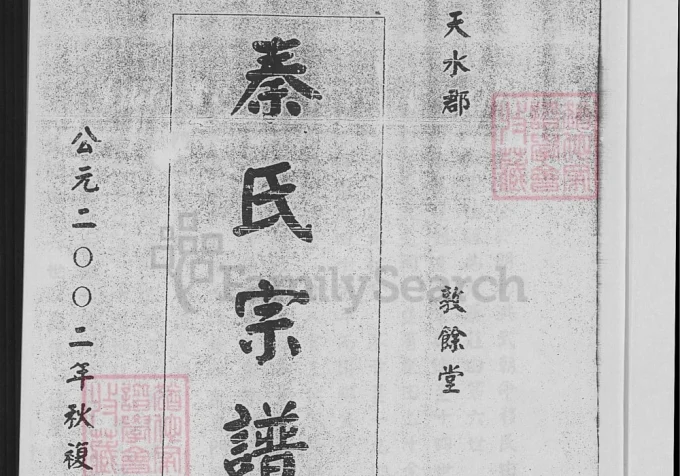 天水郡
敦餘堂
秦氏宗譜
公元二〇〇二年秋複
FamilySearch